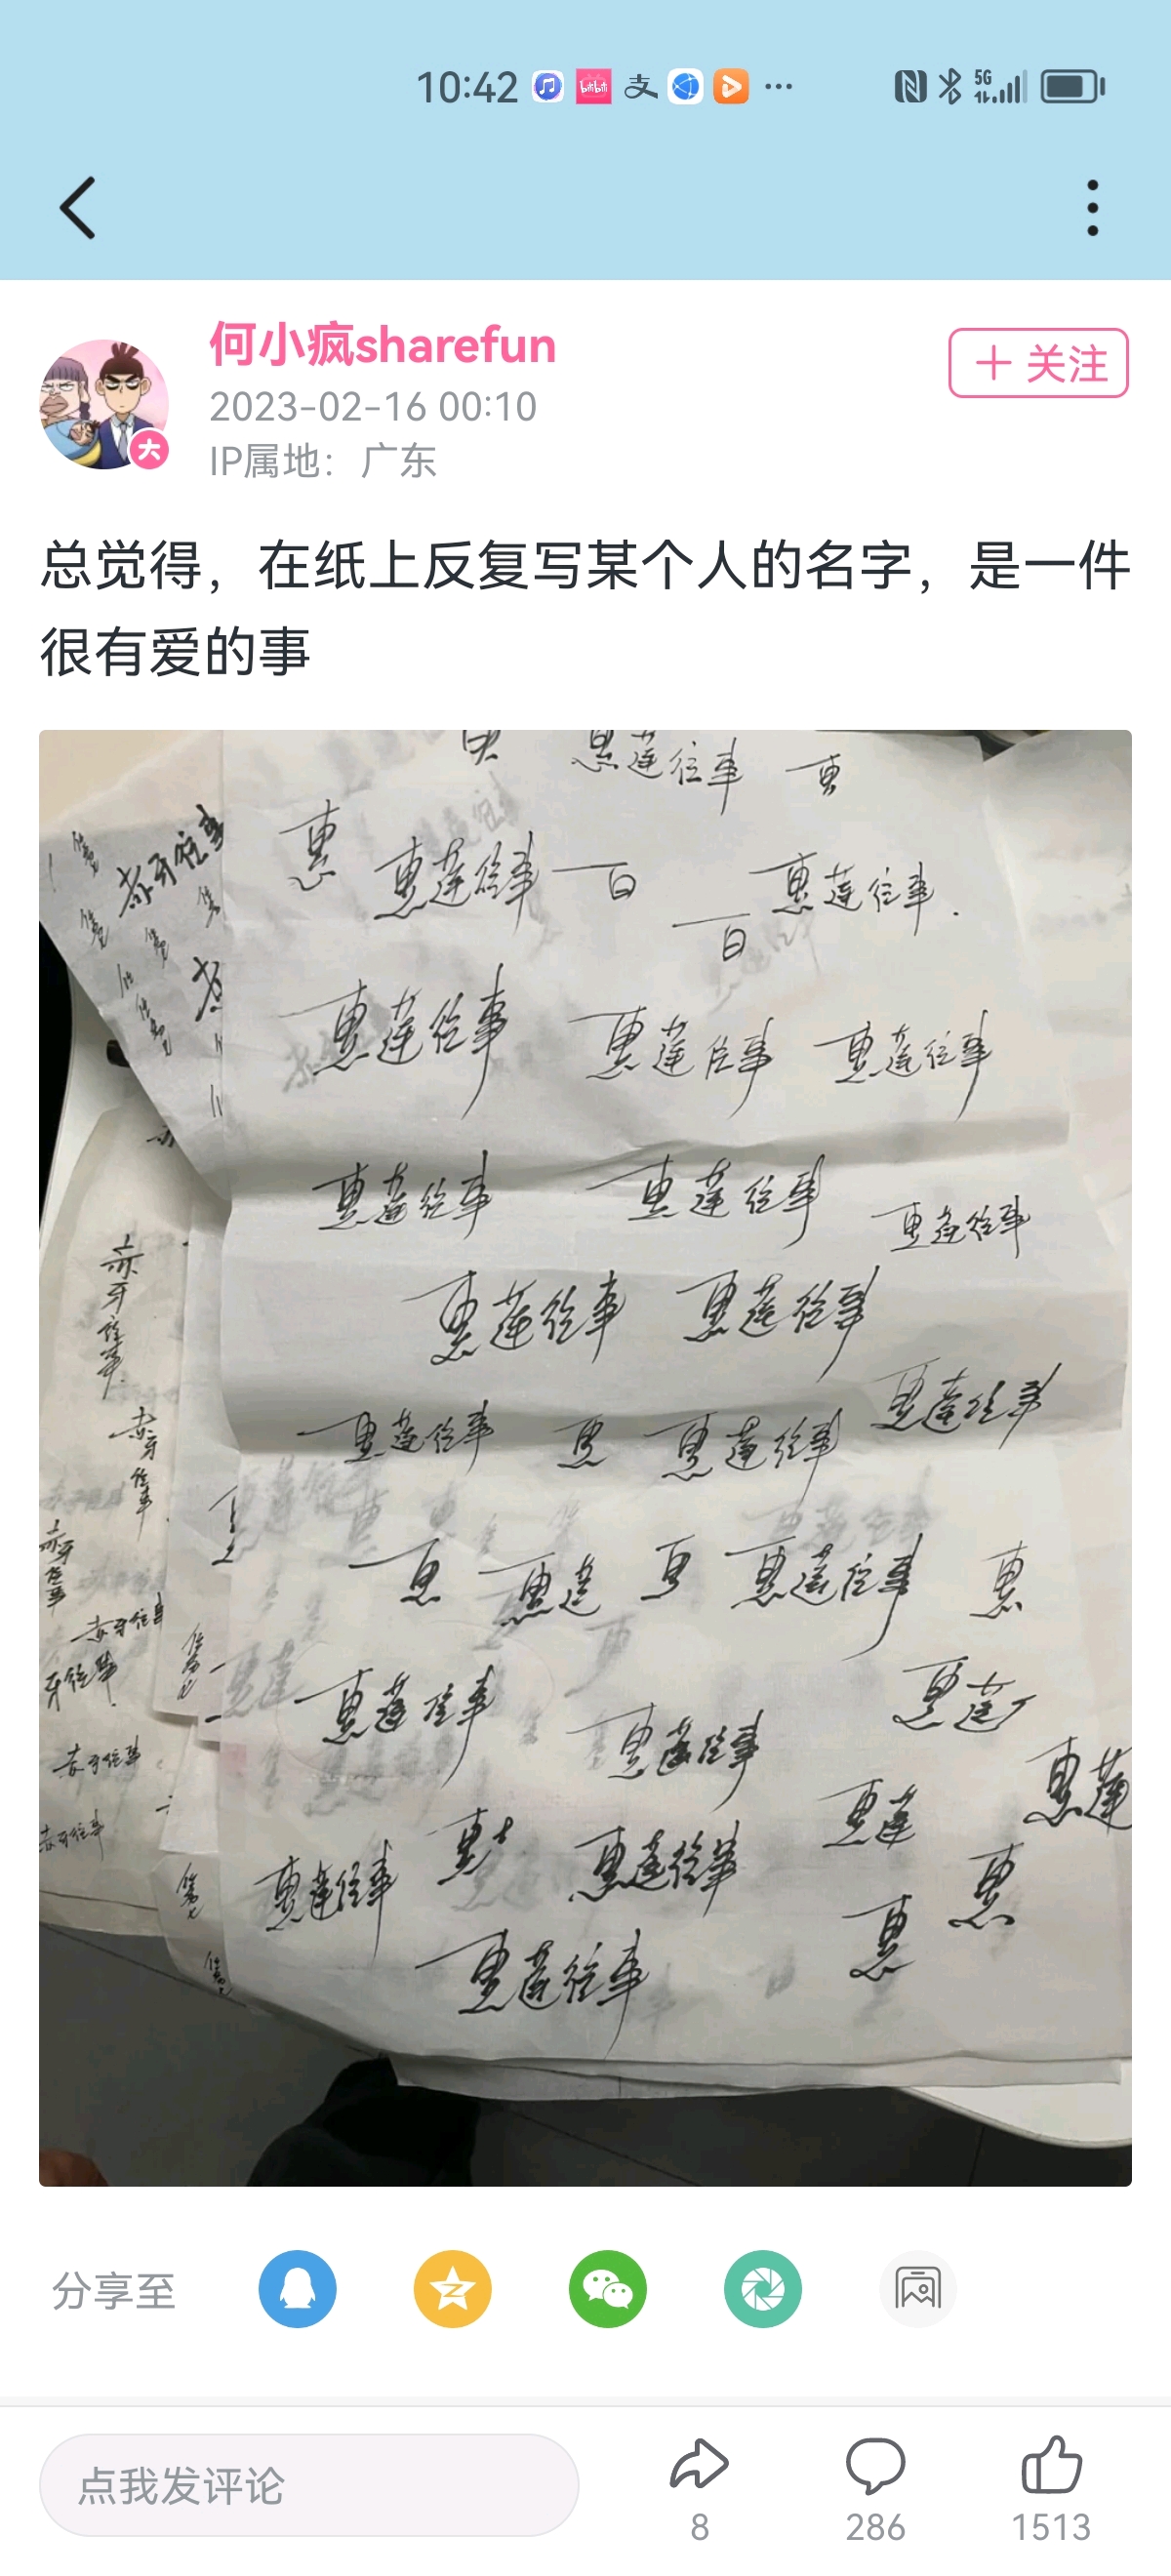 10:42
bilibili
支
5G
何小疯sharefun
大
2023-02-16 00:10
IP属地：广东
+ 关注
总觉得，在纸上反复写某个人的名字，是一件
很有爱的事
惠莲往事 惠
惠 惠莲往事 百 惠莲往事.
百
惠莲往事 惠莲往事 惠莲往事
惠莲往事 惠莲往事 惠莲往事
惠莲往事 惠莲往事
惠莲往事 惠莲往事 惠莲往事
惠莲 惠莲往事 惠
惠莲往事 惠莲往事 惠莲
惠莲往事 惠莲往事 惠莲 惠莲
惠莲往事 惠 惠
赤牙往事
赤牙往事
赤牙往事
赤牙往事
赤牙往事
牙往事
赤牙往事
赤牙往事
分享至
点我发评论
8
286
1513